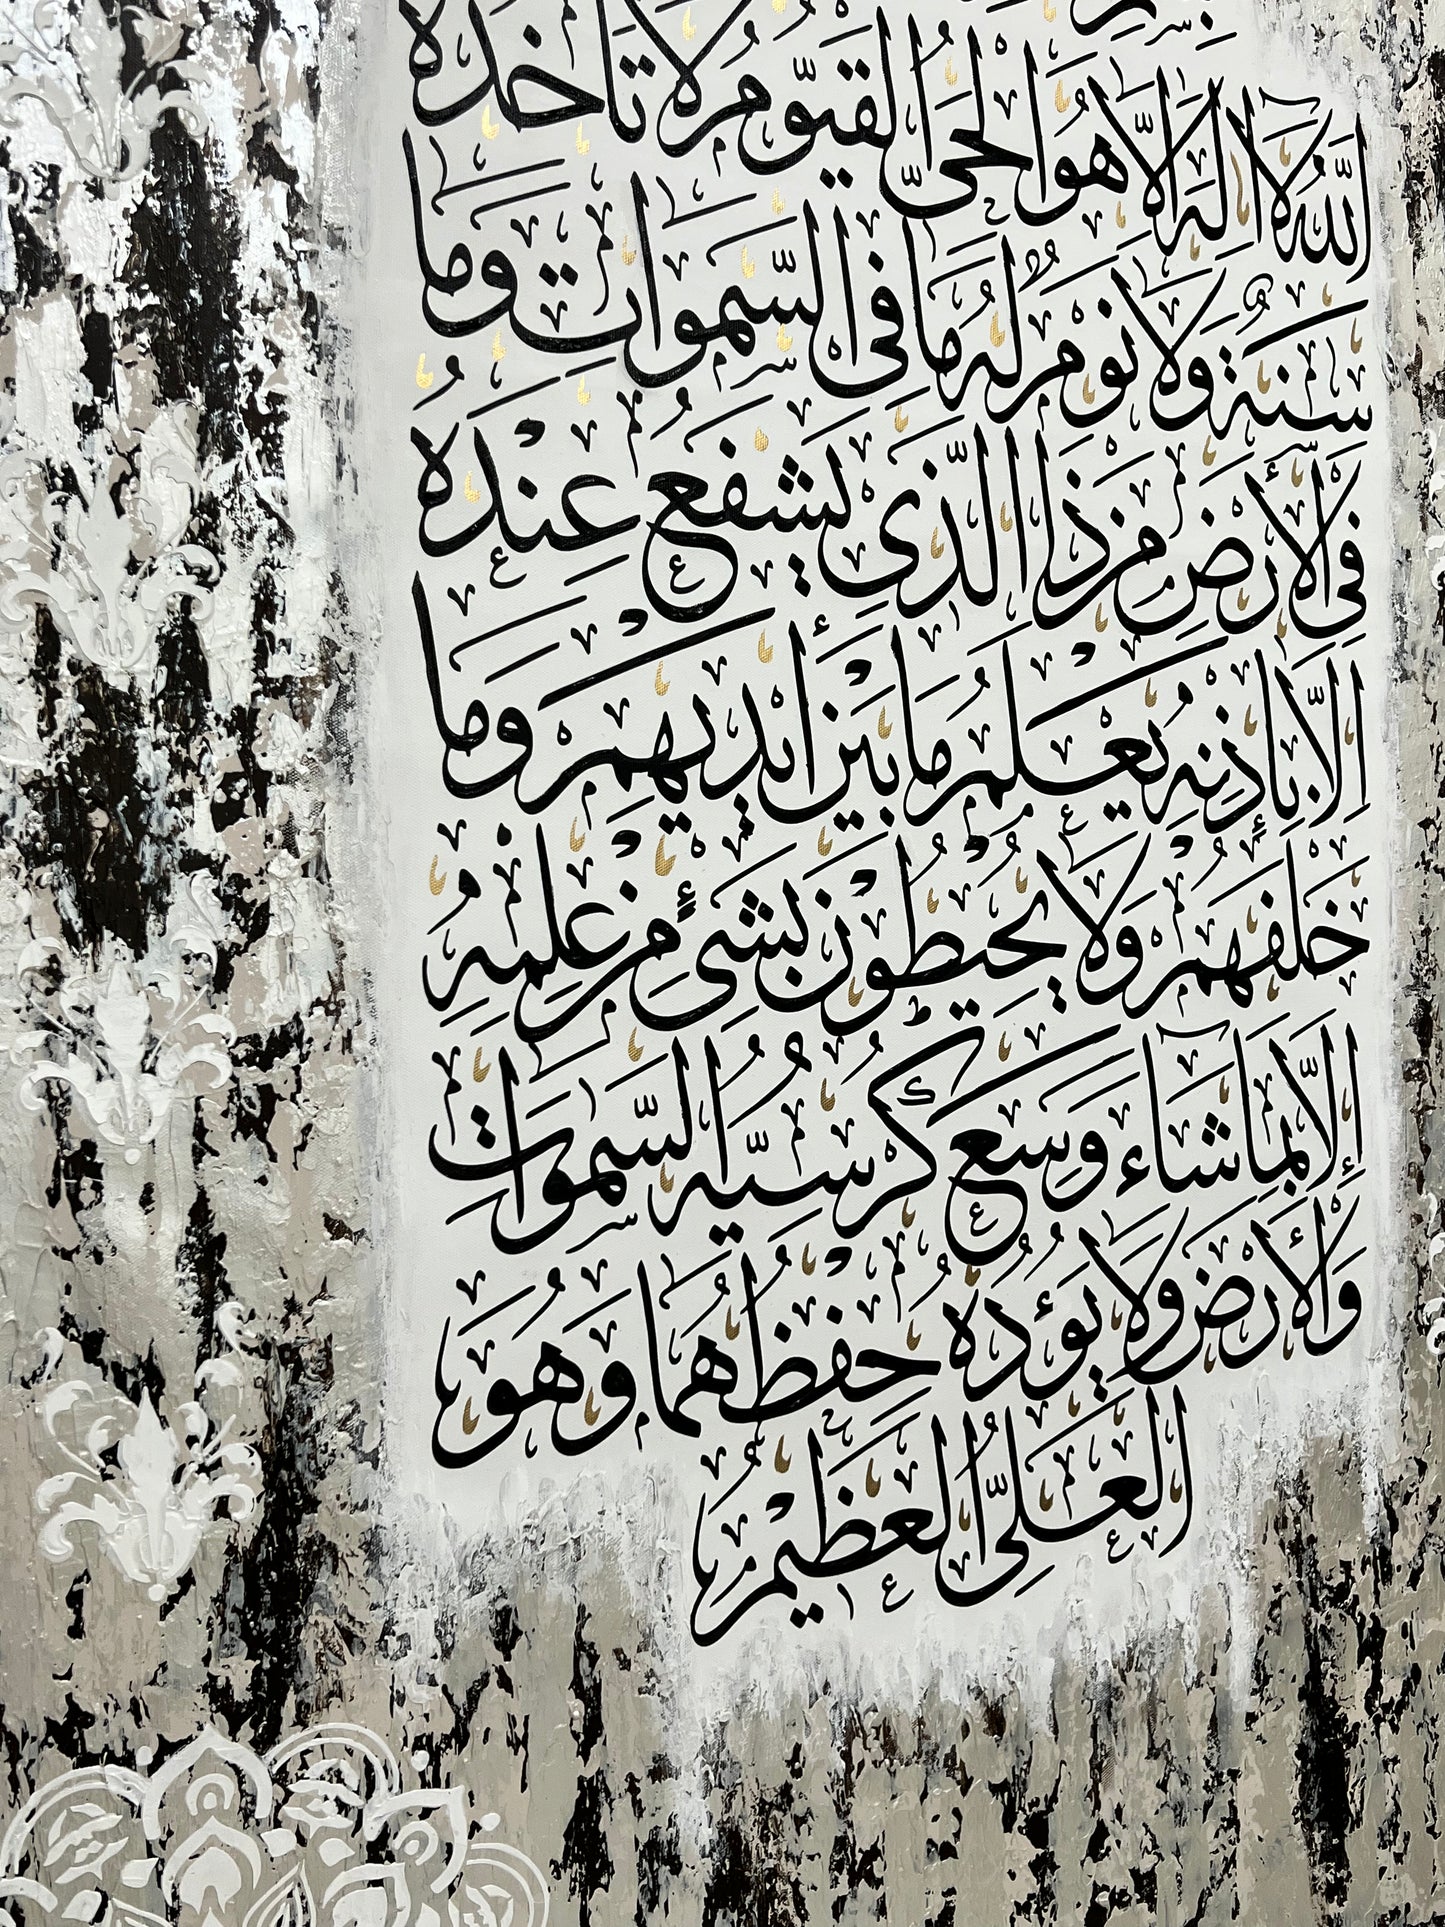 الله لا اله الا هو الحي القيوم لا تأخذه
سنة ولا نوم له ما في السموات وما
في الأرض من ذا الذي يشفع عنده
إلا بإذنه يعلم ما بين أيديهم وما
خلفهم ولا يحيطون بشيء من علمه
إلا بما شاء وسع كرسيه السموات
والأرض ولا يؤده حفظهما وهو
العلي العظيم